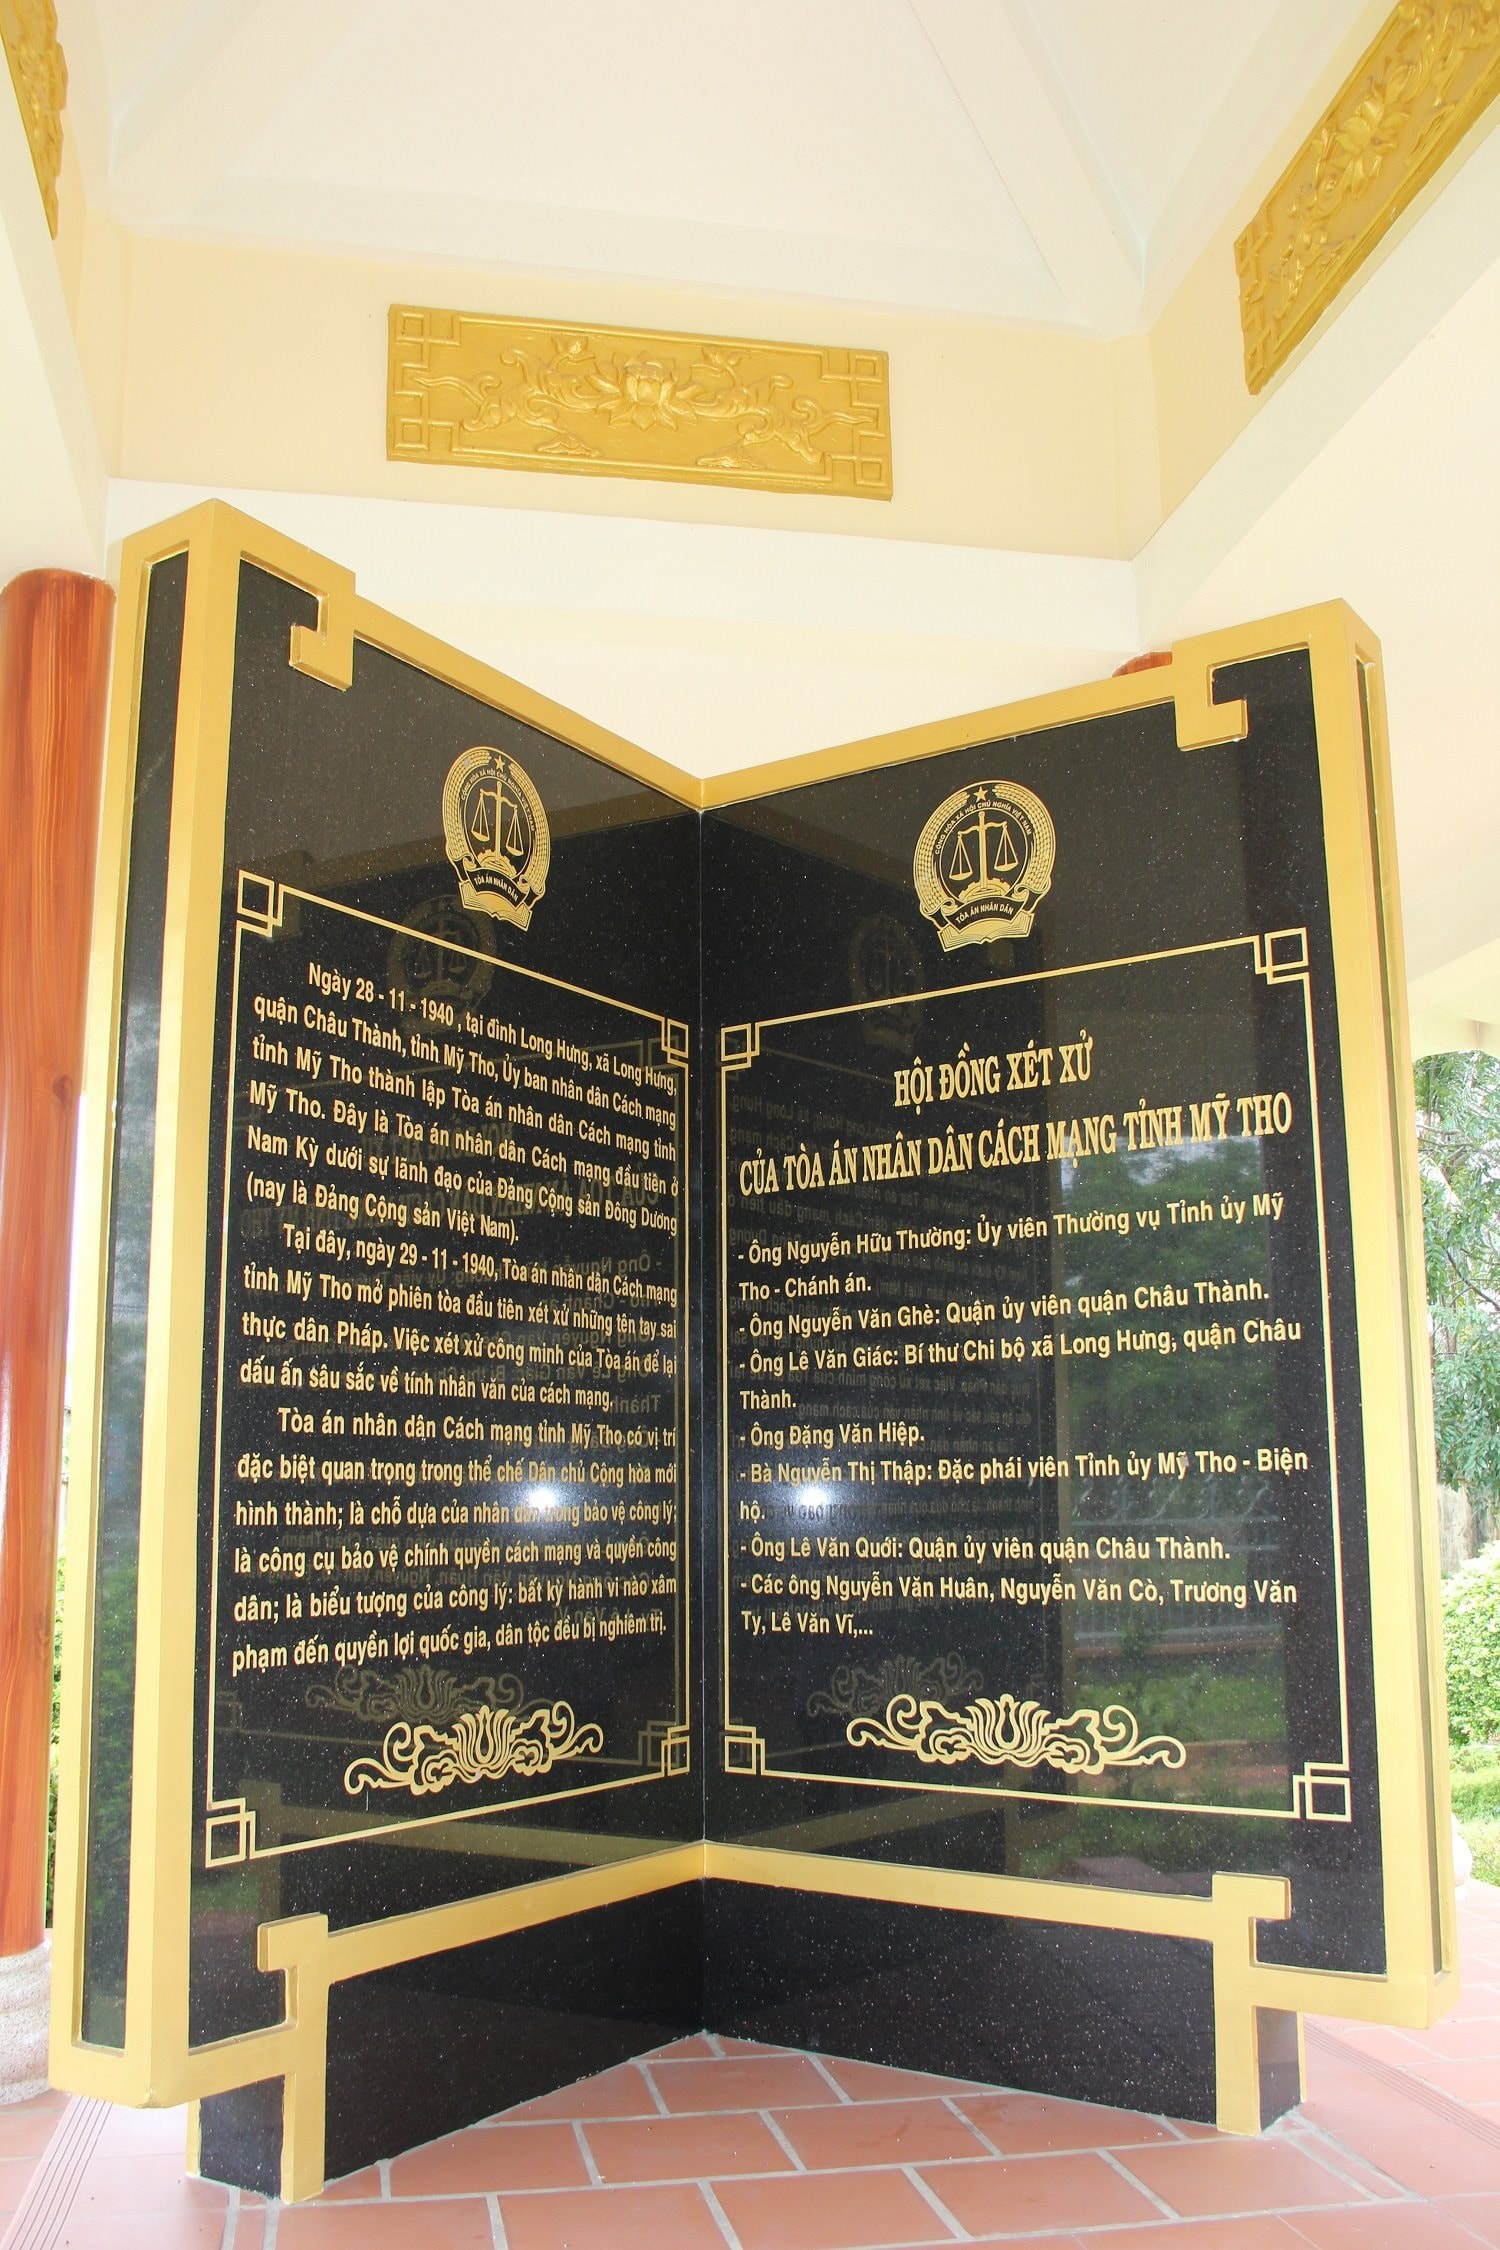 CỘNG HÒA XÃ HỘI CHỦ NGHĨA VIỆT NAM
TÒA ÁN NHÂN DÂN
Ngày 28 - 11 - 1940 , tại đình Long Hưng, xã Long Hưng,
quận Châu Thành, tỉnh Mỹ Tho, Ủy ban nhân dân Cách mạng
tỉnh Mỹ Tho thành lập Tòa án nhân dân Cách mạng tỉnh
Mỹ Tho. Đây là Tòa án nhân dân Cách mạng đầu tiên ở
Nam Kỳ dưới sự lãnh đạo của Đảng Cộng sản Đông Dương
(nay là Đảng Cộng sản Việt Nam).
Tại đây, ngày 29 - 11 - 1940, Tòa án nhân dân Cách mạng
tỉnh Mỹ Tho mở phiên tòa đầu tiên xét xử những tên tay sai
thực dân Pháp. Việc xét xử công minh của Tòa án để lại
dấu ấn sâu sắc về tính nhân văn của cách mạng.
Tòa án nhân dân Cách mạng tỉnh Mỹ Tho có vị trí
đặc biệt quan trọng trong thể chế Dân chủ Cộng hòa mới
hình thành; là chỗ dựa của nhân dân trong bảo vệ công lý;
là công cụ bảo vệ chính quyền cách mạng và quyền công
dân; là biểu tượng của công lý: bất kỳ hành vi nào xâm
phạm đến quyền lợi quốc gia, dân tộc đều bị nghiêm trị.
CỘNG HÒA XÃ HỘI CHỦ NGHĨA VIỆT NAM
TÒA ÁN NHÂN DÂN
HỘI ĐỒNG XÉT XỬ
CỦA TÒA ÁN NHÂN DÂN CÁCH MẠNG TỈNH MỸ THO
- Ông Nguyễn Hữu Thường: Ủy viên Thường vụ Tỉnh ủy Mỹ
Tho - Chánh án.
- Ông Nguyễn Văn Ghè: Quận ủy viên quận Châu Thành.
- Ông Lê Văn Giác: Bí thư Chi bộ xã Long Hưng, quận Châu
Thành.
- Ông Đặng Văn Hiệp.
- Bà Nguyễn Thị Thập: Đặc phái viên Tỉnh ủy Mỹ Tho - Biện
hộ.
- Ông Lê Văn Quới: Quận ủy viên quận Châu Thành.
- Các ông Nguyễn Văn Huân, Nguyễn Văn Cò, Trương Văn
Ty, Lê Văn Vĩ,...